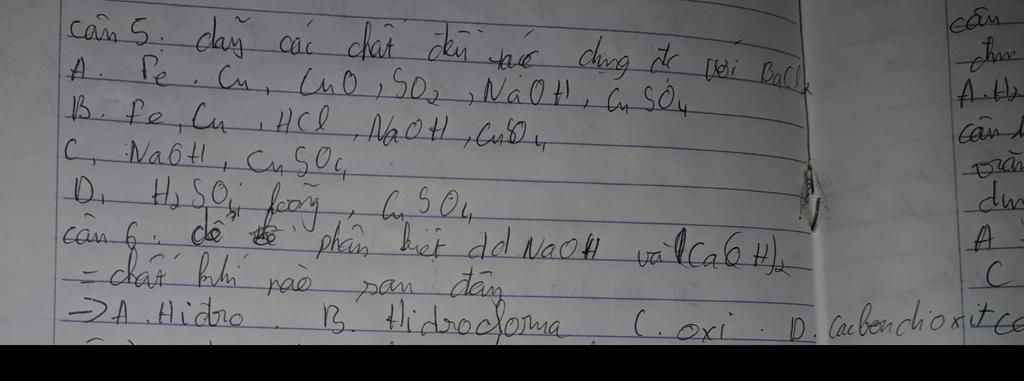 câu 5: dãy các chất đều tác dụng đc với BaCl2
A. Fe, Cu, CuO, SO2, NaOH, CuSO4
B. Fe, Cu, HCl, NaOH, CuSO4
C, NaOH, CuSO4
D, H2SO4 loãng, CuSO4
câu 6: để phân biệt dd NaOH và Ca(OH)2
= chất khí nào sau đây
-> A. Hidro. B. Hidrocloma C. oxi. D. cacbondioxit
câu
A. H2
câu
du
A
C